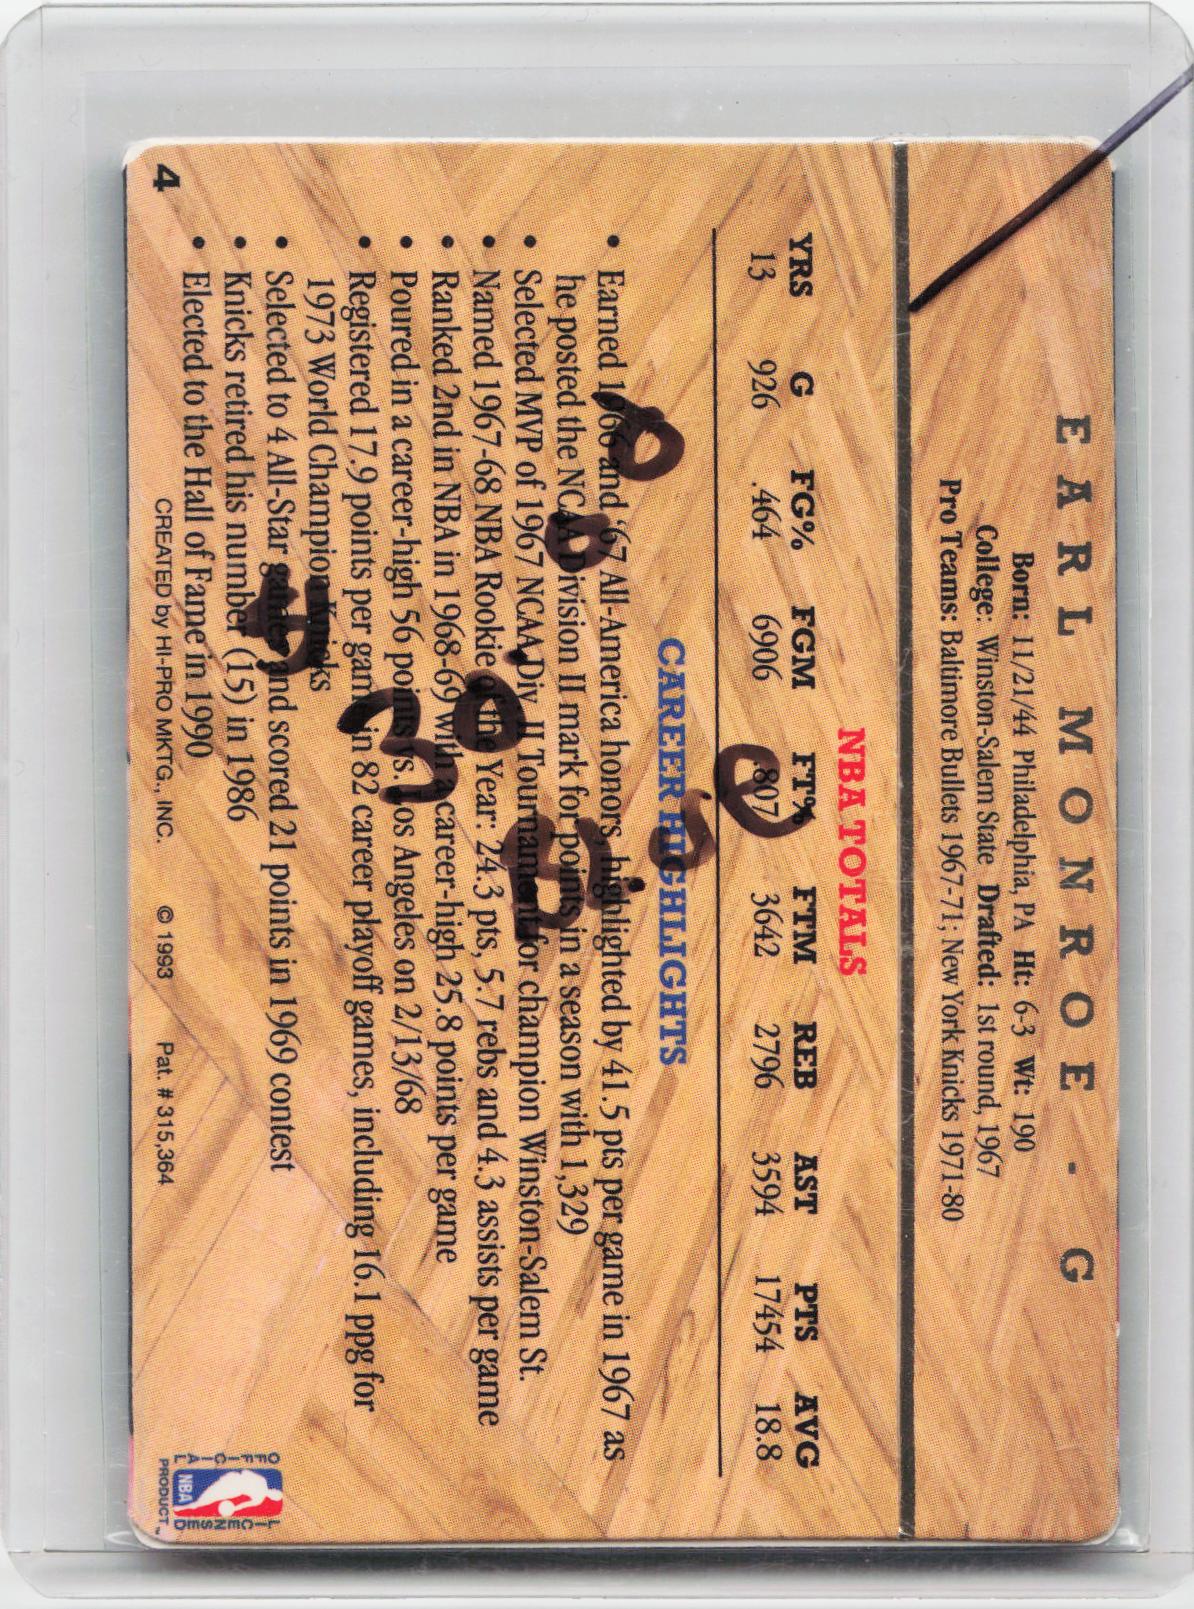 EARL MONROE - G
Born: 11/21/44 Philadelphia, PA Ht: 6-3 Wt: 190
College: Winston-Salem State Drafted: 1st round, 1967
Pro Teams: Baltimore Bullets 1967-71; New York Knicks 1971-80
NBA TOTALS
YRS G FG% FGM FT% FTM REB AST PTS AVG
13 926 .464 6906 .807 3642 2796 3594 17454 18.8
CAREER HIGHLIGHTS
• Earned 1966 and '67 All-America honors, highlighted by 41.5 pts per game in 1967 as
he posted the NCAA Division II mark for points in a season with 1,329
• Selected MVP of 1967 NCAA Div. II Tournament for champion Winston-Salem St.
• Named 1967-68 NBA Rookie of the Year: 24.3 pts, 5.7 rebs and 4.3 assists per game
• Ranked 2nd in NBA in 1968-69 with a career-high 25.8 points per game
• Poured in a career-high 56 points vs. Los Angeles on 2/13/68
• Registered 17.9 points per game in 82 career playoff games, including 16.1 ppg for
1973 World Champion Knicks
• Selected to 4 All-Star games and scored 21 points in 1969 contest
• Knicks retired his number (15) in 1986
• Elected to the Hall of Fame in 1990
4
CREATED by HI-PRO MKTG., INC. © 1993 Pat. # 315,364
OFFICIAL LICENSED
NBA
PRODUCT™